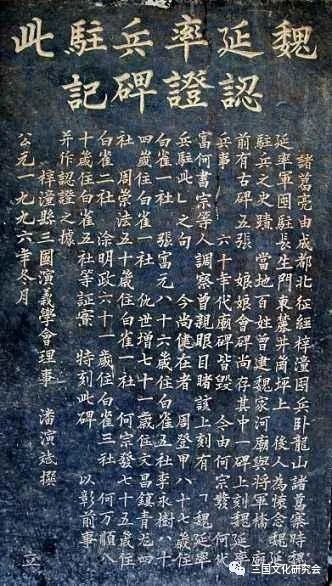 魏延率兵駐此
認證碑記
諸葛亮由成都北征經梓潼困兵卧龍山諸葛寨時魏
延率軍囤駐長生門東麓井崗坪上 後人為懷念魏延
駐兵之史蹟 當地百姓曾建魏家河廟與將軍橋 廟
前有古碑五張 娘娘會碑尚存其中一碑上刻魏延率
兵事 六十年代廟碑皆毀 今由何宗發 何代
富何書宗等人調察曾親眼目睹該上刻有「魏延率
兵駐此」之句 今尚健在者 周登甲八十七歲住
白雀一社 張富元八十六歲住白雀五社李永樹八十
四歲住白雀一社 仇世增七十一歲住文昌鎮青龙四
社 周崇法五十歲住白雀一社 何宗發七十五歲住
白雀二社 涂明政六十一歲住白雀三社 何万順八
十歲住白雀五社等証實 特刻此碑 以彰前事
并作認證之據
梓潼縣三國演義學會理事 潘演撰
公元一九九六年冬月 立
三国文化研究会